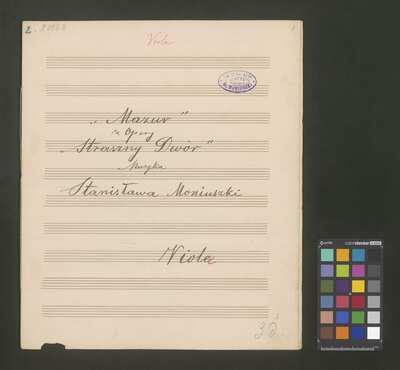 Viola
„Mazur"
z Opery
„Straszny Dwór"
Muzyka
Stanisława Moniuszki
Viola